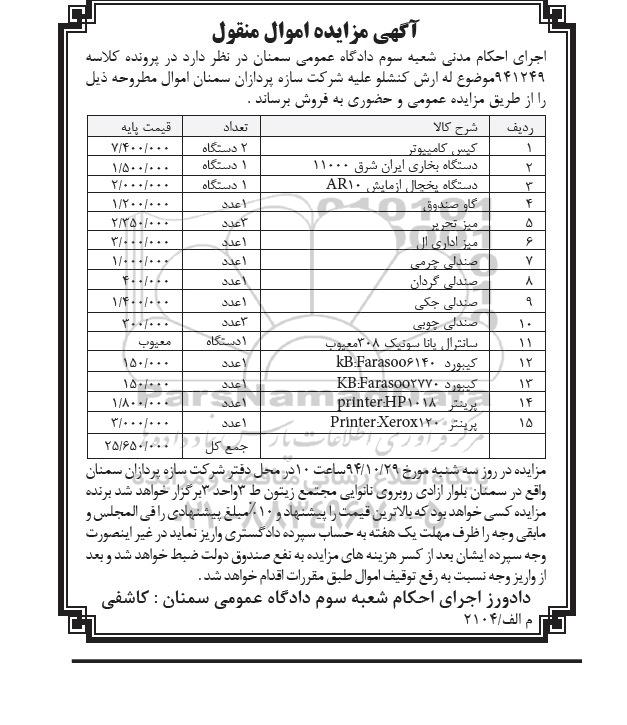 آگهی مزایده اموال منقول
اجرای احکام مدنی شعبه سوم دادگاه عمومی سمنان در نظر دارد در پرونده کلاسه
۹۴۱۲۴۹موضوع له ارش کنشلو علیه شرکت سازه پردازان سمنان اموال مطروحه ذیل
را از طریق مزایده عمومی و حضوری به فروش برساند .
ردیف شرح کالا تعداد قیمت پایه
۱ کیس کامپیوتر ۲ دستگاه ۷/۴۰۰/۰۰۰
۲ دستگاه بخاری ایران شرق ۱۱۰۰۰ ۱ دستگاه ۱/۵۰۰/۰۰۰
۳ دستگاه یخچال ازمایش AR۱۰ ۱ دستگاه ۲/۰۰۰/۰۰۰
۴ گاو صندوق ۱عدد ۱/۲۰۰/۰۰۰
۵ میز تحریر ۳عدد ۲/۳۵۰/۰۰۰
۶ میز اداری ال ۱عدد ۳/۰۰۰/۰۰۰
۷ صندلی چرمی ۱عدد ۱/۰۰۰/۰۰۰
۸ صندلی گردان ۱عدد ۴۰۰/۰۰۰
۹ صندلی جکی ۱عدد ۱/۴۰۰/۰۰۰
۱۰ صندلی چوبی ۳عدد ۳۰۰/۰۰۰
۱۱ سانترال پانا سونیک ۳۰۸معیوب ۱دستگاه معیوب
۱۲ کیبورد kB:Farasoo۶۱۴۰ ۱عدد ۱۵۰/۰۰۰
۱۳ کیبورد KB:Farasoo۲۷۷۰ ۱عدد ۱۵۰/۰۰۰
۱۴ پرینتر printer:HP۱۰۱۸ ۱عدد ۱/۸۰۰/۰۰۰
۱۵ پرینتر Printer:Xerox۱۲۰ ۱عدد ۳/۰۰۰/۰۰۰
جمع کل ۲۵/۶۵۰/۰۰۰
مزایده در روز سه شنبه مورخ ۹۴/۱۰/۲۹ساعت ۱۰در محل دفتر شرکت سازه پردازان سمنان
واقع در سمنان بلوار ازادی روبروی نانوایی مجتمع زیتون ط ۳واحد ۳برگزار خواهد شد برنده
مزایده کسی خواهد بود که بالاترین قیمت را پیشنهاد و ۱۰٪مبلغ پیشنهادی را فی المجلس و
مابقی وجه را ظرف مهلت یک هفته به حساب سپرده دادگستری واریز نماید در غیر اینصورت
وجه سپرده ایشان بعد از کسر هزینه های مزایده به نفع صندوق دولت ضبط خواهد شد و بعد
از واریز وجه نسبت به رفع توقیف اموال طبق مقررات اقدام خواهد شد .
دادورز اجرای احکام شعبه سوم دادگاه عمومی سمنان : کاشفی
م الف/۲۱۰۴